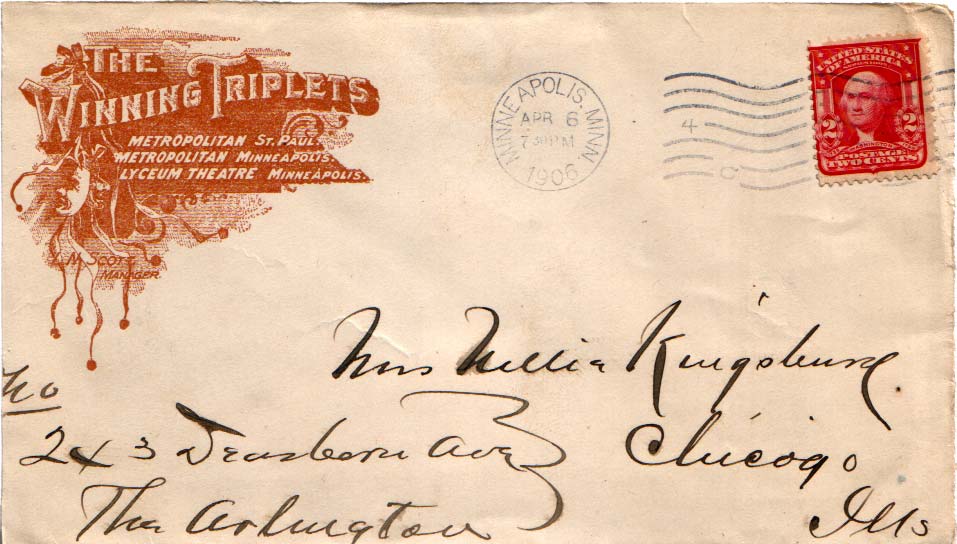 THE
WINNING TRIPLETS
METROPOLITAN ST. PAUL.
METROPOLITAN MINNEAPOLIS.
LYCEUM THEATRE MINNEAPOLIS.
L. M. SCOTT
MANAGER
MINNEAPOLIS, MINN.
APR 6
7 30 PM
1906
4
UNITED STATES
OF AMERICA
2 2
WASHINGTON
POSTAGE
TWO CENTS
Mrs Nellie Kingsbury
No
243 Dearborn Ave Chicago
The Arlington Ills